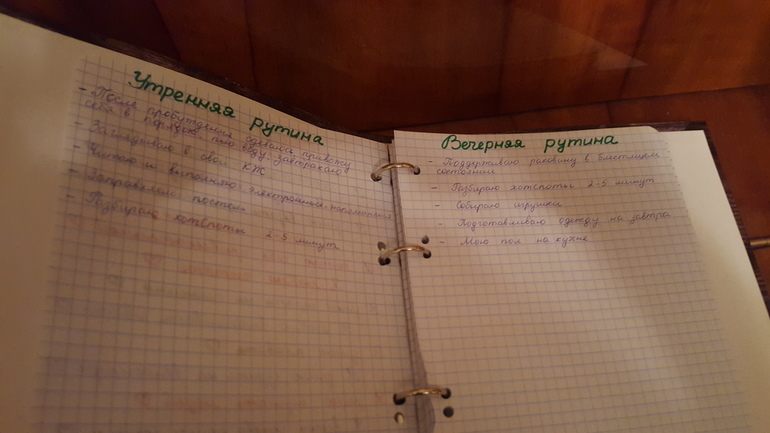 Утренняя рутина
- После пробуждения одеваюсь, привожу
себя в порядок, пью воду, завтракаю
- Заглядываю в свой КЖ
- Читаю и выполняю электронные напоминания
- Заправляю постель
- Разбираю хотспоты 2-5 минут
Вечерняя рутина
- Поддерживаю раковину в блестящем
состоянии
- Разбираю хотспоты 2-5 минут
- Собираю игрушки
- Подготавливаю одежду на завтра
- Мою пол на кухне